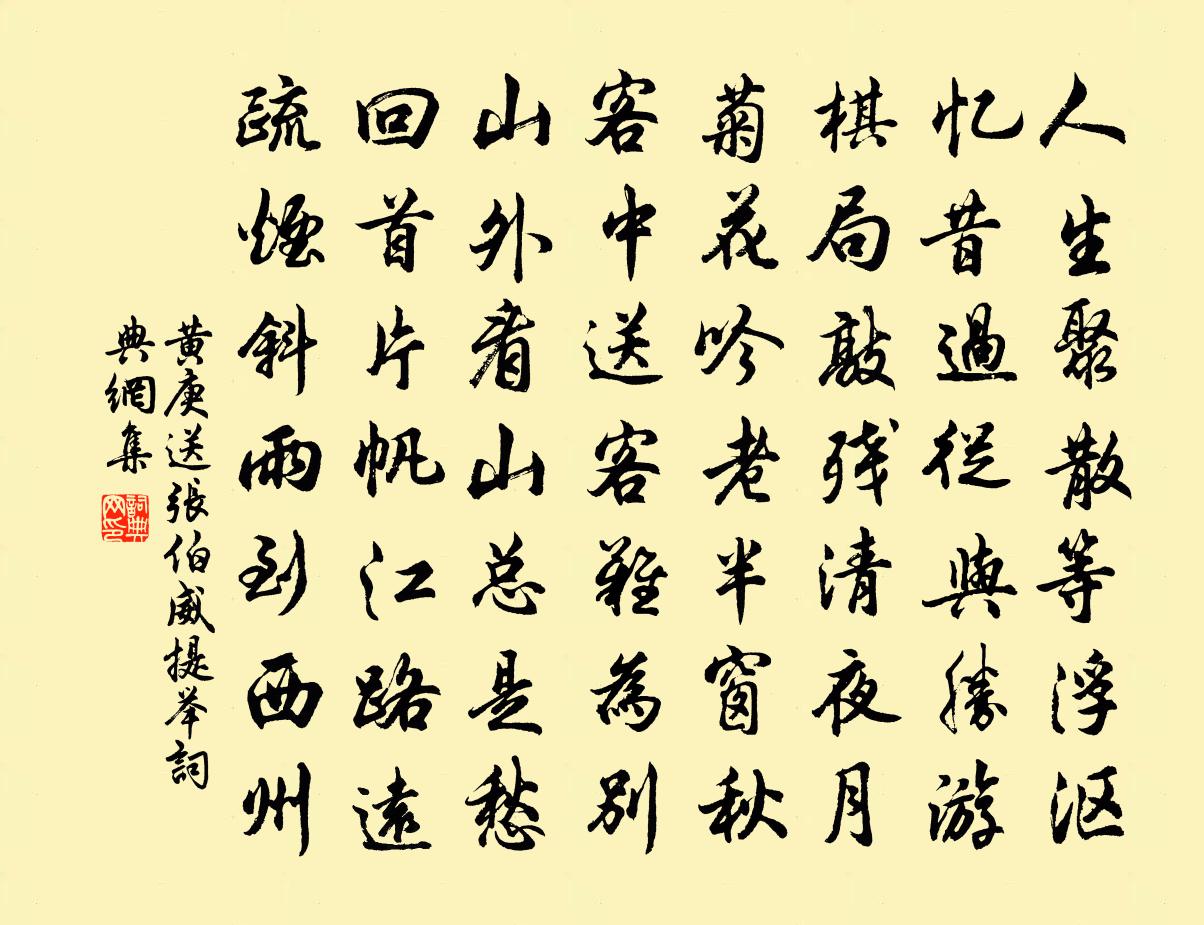 人生聚散等浮沤
忆昔過従與勝游
棋局敲残清夜月
菊花吟老半窗秋
客中送客難為别
山外看山总是愁
回首片帆江路遠
疏煙斜雨到西州
黄庚送張伯威提举詞
典網集
詞典网印